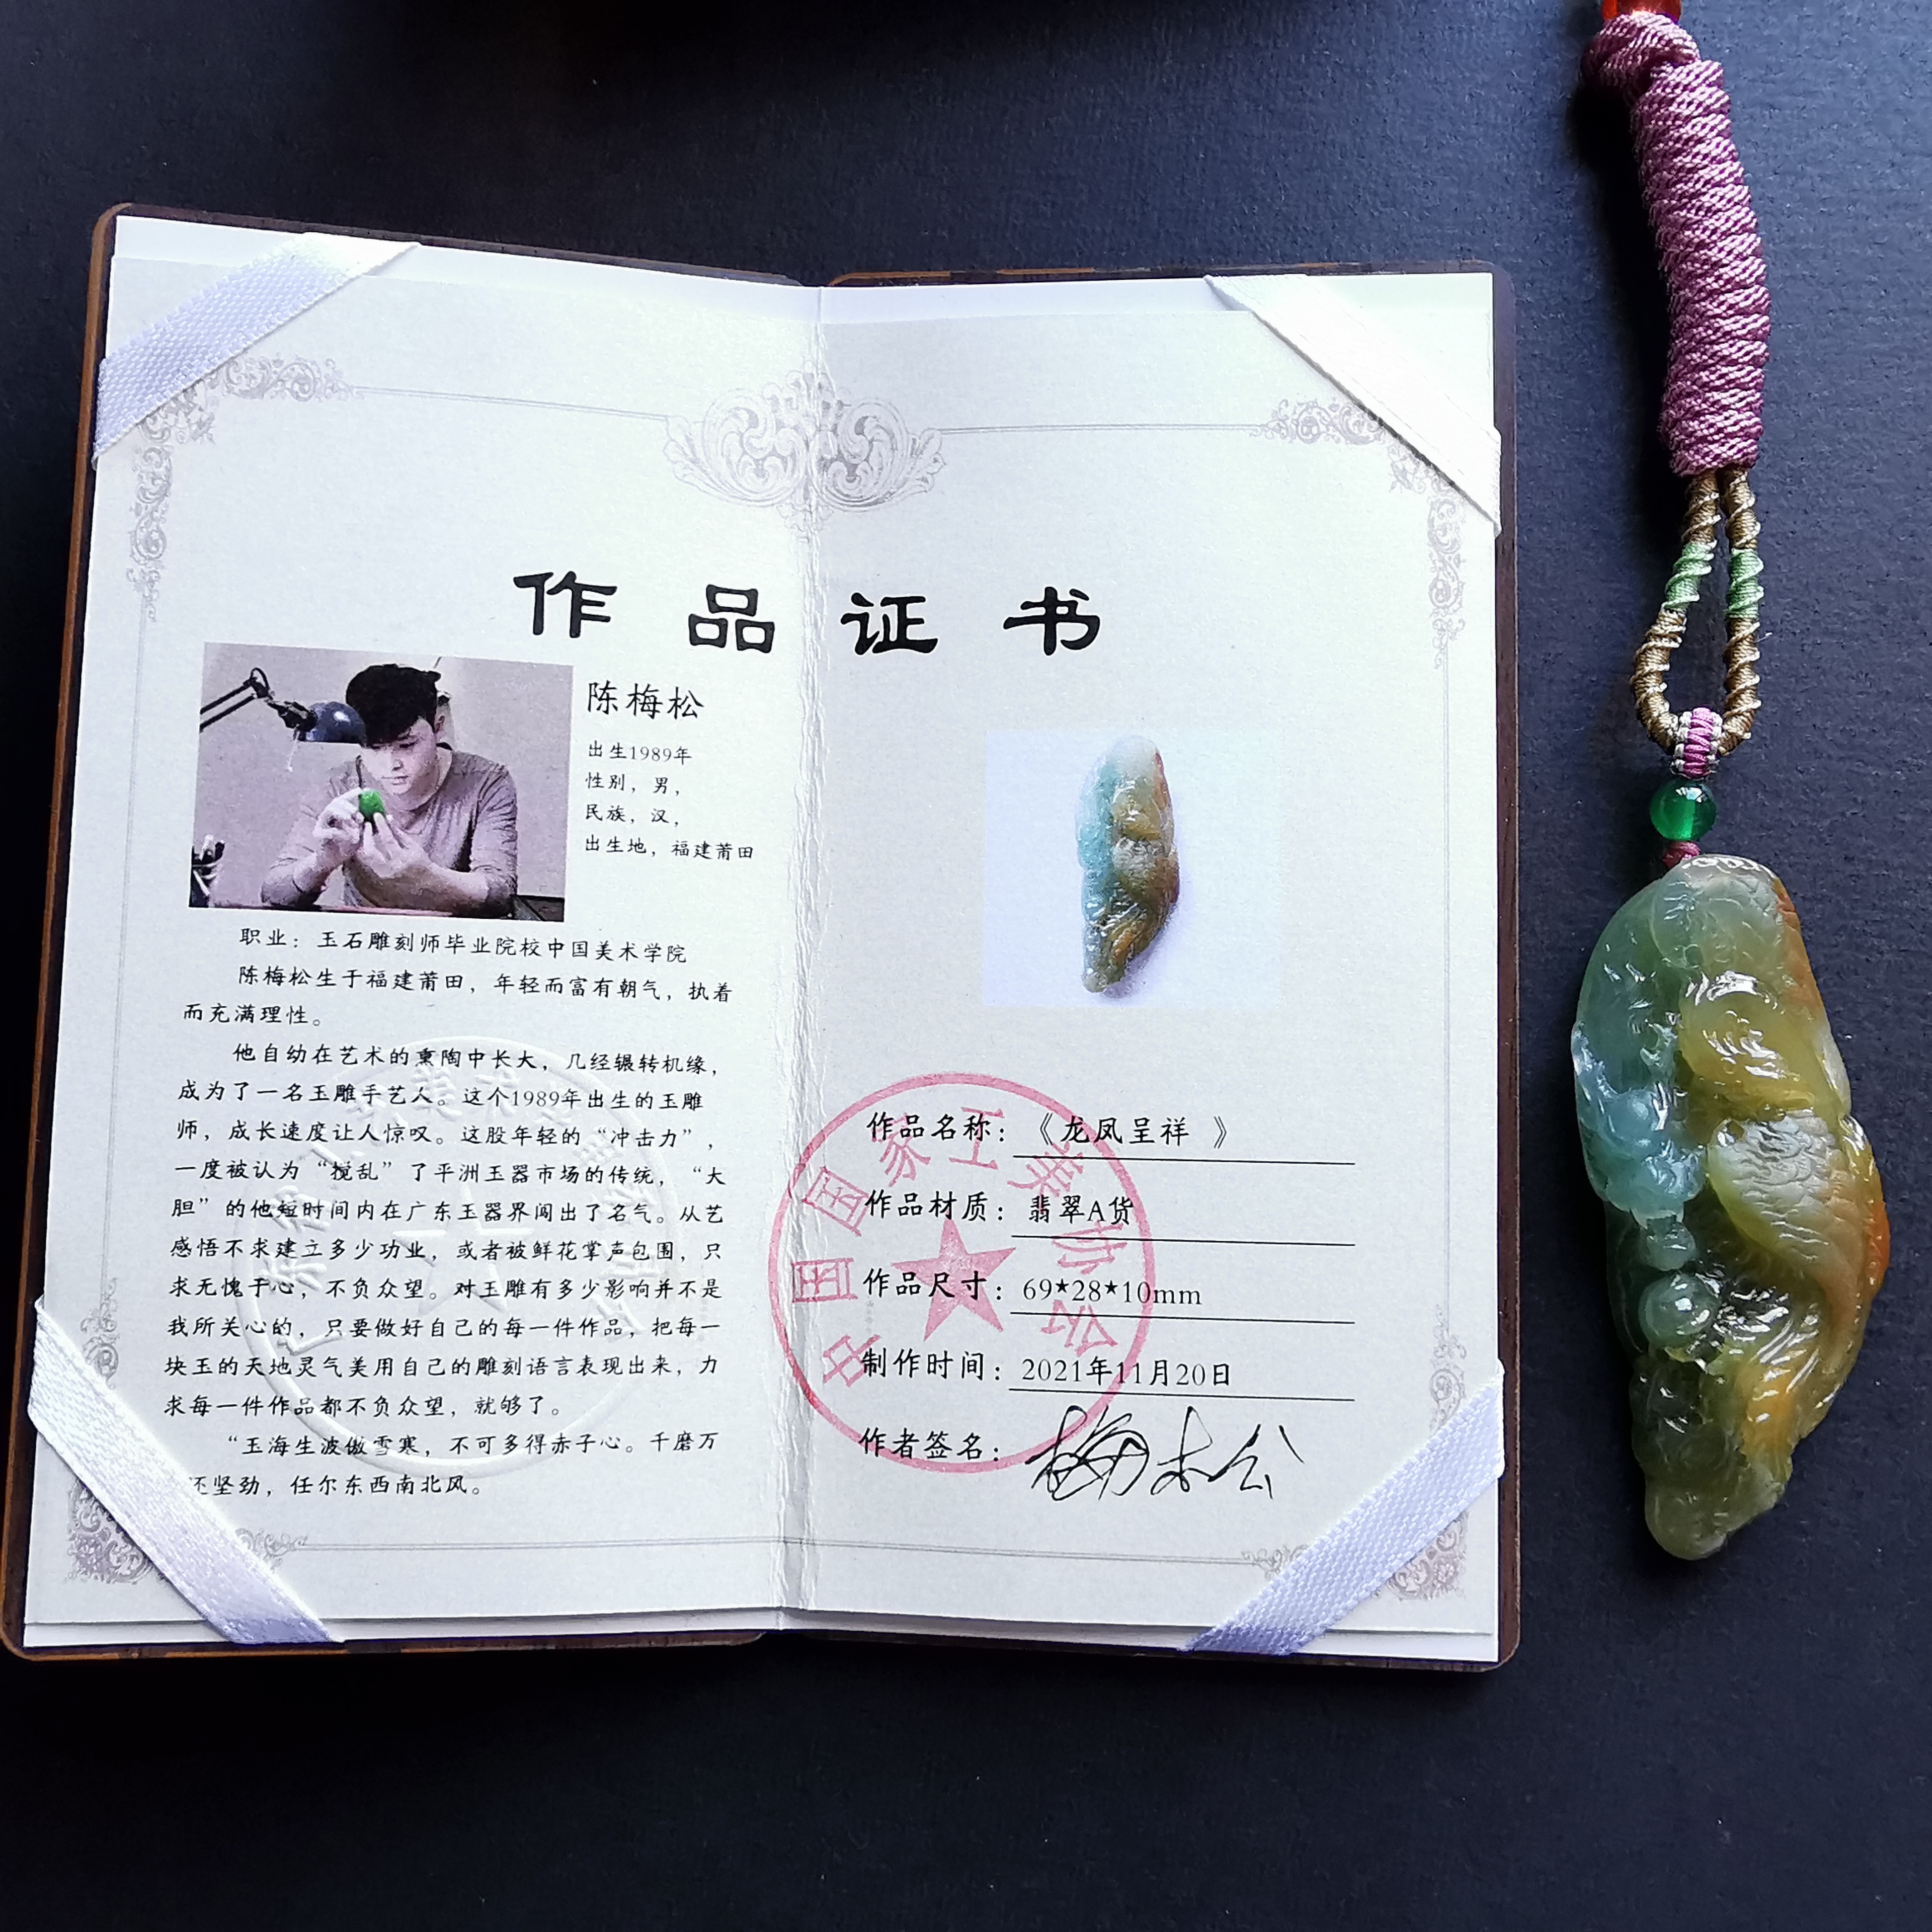 作品证书
陈梅松
出生1989年
性别，男，
民族，汉，
出生地，福建莆田
职业：玉石雕刻师毕业院校中国美术学院
陈梅松生于福建莆田，年轻而富有朝气，执着
而充满理性。
他自幼在艺术的熏陶中长大，几经辗转机缘，
成为了一名玉雕手艺人。这个1989年出生的玉雕
师，成长速度让人惊叹。这股年轻的“冲击力”，
一度被认为“搅乱”了平洲玉器市场的传统，“大
胆”的他短时间内在广东玉器界闯出了名气。从艺
感悟不求建立多少功业，或者被鲜花掌声包围，只
求无愧于心，不负众望。对玉雕有多少影响并不是
我所关心的，只要做好自己的每一件作品，把每一
块玉的天地灵气美用自己的雕刻语言表现出来，力
求每一件作品都不负众望，就够了。
“玉海生波傲雪寒，不可多得赤子心。千磨万
还坚劲，任尔东西南北风。
作品名称：《龙凤呈祥 》
作品材质：翡翠A货
作品尺寸：69*28*10mm
制作时间：2021年11月20日
作者签名：梅松
中国国家工美协会